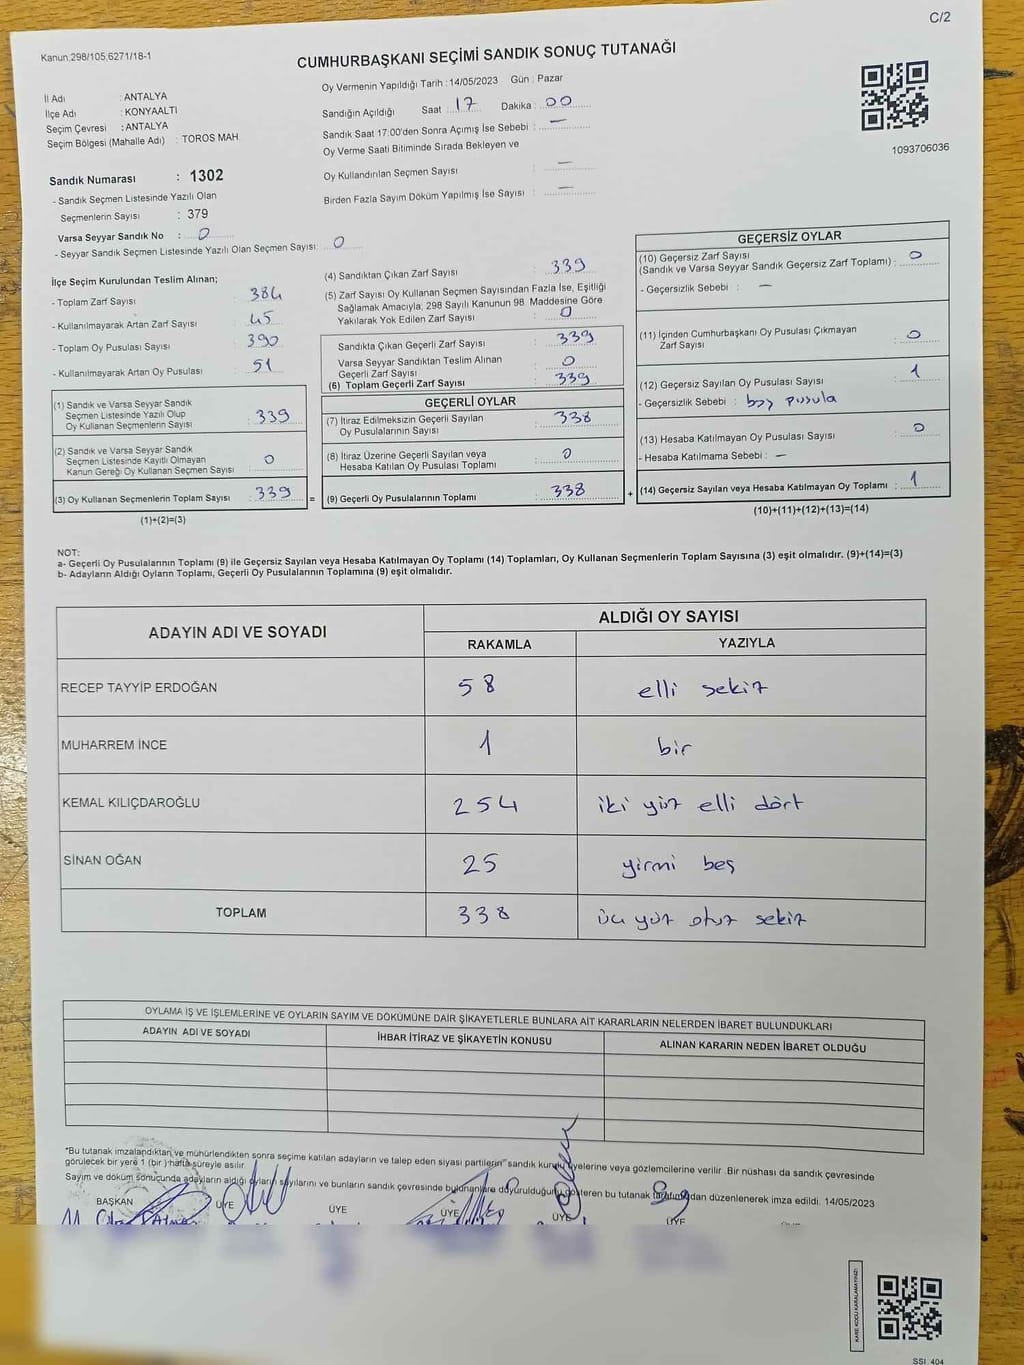 C/2
Kanun,298/105,6271/18-1
CUMHURBAŞKANI SEÇİMİ SANDIK SONUÇ TUTANAĞI
İl Adı : ANTALYA
İlçe Adı : KONYAALTI
Seçim Çevresi : ANTALYA
Seçim Bölgesi (Mahalle Adı) : TOROS MAH.
Sandık Numarası : 1302
- Sandık Seçmen Listesinde Yazılı Olan
Seçmenlerin Sayısı : 379
Varsa Seyyar Sandık No : 0
- Seyyar Sandık Seçmen Listesinde Yazılı Olan Seçmen Sayısı: 0
Oy Vermenin Yapıldığı Tarih : 14/05/2023 Gün : Pazar
Sandığın Açıldığı Saat 17 Dakika : 00
Sandık Saat 17:00'den Sonra Açımış İse Sebebi : —
Oy Verme Saati Bitiminde Sırada Bekleyen ve
Oy Kullandırılan Seçmen Sayısı : —
Birden Fazla Sayım Döküm Yapılmış İse Sayısı : —
1093706036
İlçe Seçim Kurulundan Teslim Alınan;
- Toplam Zarf Sayısı : 384
- Kullanılmayarak Artan Zarf Sayısı : 45
- Toplam Oy Pusulası Sayısı : 390
- Kullanılmayarak Artan Oy Pusulası : 51
(1) Sandık ve Varsa Seyyar Sandık
Seçmen Listesinde Yazılı Olup
Oy Kullanan Seçmenlerin Sayısı : 339
(2) Sandık ve Varsa Seyyar Sandık
Seçmen Listesinde Kayıtlı Olmayan
Kanun Gereği Oy Kullanan Seçmen Sayısı : 0
(3) Oy Kullanan Seçmenlerin Toplam Sayısı : 339
(1)+(2)=(3)
(4) Sandıktan Çıkan Zarf Sayısı : 339
(5) Zarf Sayısı Oy Kullanan Seçmen Sayısından Fazla İse, Eşitliği
Sağlamak Amacıyla, 298 Sayılı Kanunun 98. Maddesine Göre
Yakılarak Yok Edilen Zarf Sayısı : 0
Sandıkta Çıkan Geçerli Zarf Sayısı : 339
Varsa Seyyar Sandıktan Teslim Alınan
Geçerli Zarf Sayısı : 0
(6) Toplam Geçerli Zarf Sayısı : 339
GEÇERLİ OYLAR
(7) İtiraz Edilmeksizin Geçerli Sayılan
Oy Pusulalarının Sayısı : 338
(8) İtiraz Üzerine Geçerli Sayılan veya
Hesaba Katılan Oy Pusulası Toplamı : 0
= (9) Geçerli Oy Pusulalarının Toplamı : 338
GEÇERSİZ OYLAR
(10) Geçersiz Zarf Sayısı
(Sandık ve Varsa Seyyar Sandık Geçersiz Zarf Toplamı) : 0
- Geçersizlik Sebebi : —
(11) İçinden Cumhurbaşkanı Oy Pusulası Çıkmayan
Zarf Sayısı : 0
(12) Geçersiz Sayılan Oy Pusulası Sayısı : 1
- Geçersizlik Sebebi : boş pusula
(13) Hesaba Katılmayan Oy Pusulası Sayısı : 0
- Hesaba Katılmama Sebebi : —
+ (14) Geçersiz Sayılan veya Hesaba Katılmayan Oy Toplamı : 1
(10)+(11)+(12)+(13)=(14)
NOT:
a- Geçerli Oy Pusulalarının Toplamı (9) ile Geçersiz Sayılan veya Hesaba Katılmayan Oy Toplamı (14) Toplamları, Oy Kullanan Seçmenlerin Toplam Sayısına (3) eşit olmalıdır. (9)+(14)=(3)
b- Adayların Aldığı Oyların Toplamı, Geçerli Oy Pusulalarının Toplamına (9) eşit olmalıdır.
ADAYIN ADI VE SOYADI
ALDIĞI OY SAYISI
RAKAMLA YAZIYLA
RECEP TAYYİP ERDOĞAN 58 elli sekiz
MUHARREM İNCE 1 bir
KEMAL KILIÇDAROĞLU 254 iki yüz elli dört
SİNAN OĞAN 25 yirmi beş
TOPLAM 338 üç yüz otuz sekiz
OYLAMA İŞ VE İŞLEMLERİNE VE OYLARIN SAYIM VE DÖKÜMÜNE DAİR ŞİKAYETLERLE BUNLARA AİT KARARLARIN NELERDEN İBARET BULUNDUKLARI
ADAYIN ADI VE SOYADI İHBAR İTİRAZ VE ŞİKAYETİN KONUSU ALINAN KARARIN NEDEN İBARET OLDUĞU
"Bu tutanak imzalandıktan ve mühürlendikten sonra seçime katılan adayların ve talep eden siyasi partilerin" sandık kurulu üyelerine veya gözlemcilerine verilir. Bir nüshası da sandık çevresinde
görülecek bir yere 1 (bir) hafta süreyle asılır.
Sayım ve döküm sonucunda adayların aldığı oyların sayılarını ve bunların sandık çevresinde bulunanlara duyurulduğunu gösteren bu tutanak tarafımızdan düzenlenerek imza edildi. 14/05/2023
BAŞKAN ÜYE ÜYE ÜYE ÜYE ÜYE
KARE KODU KARALAMAYINIZ!
SSI_404